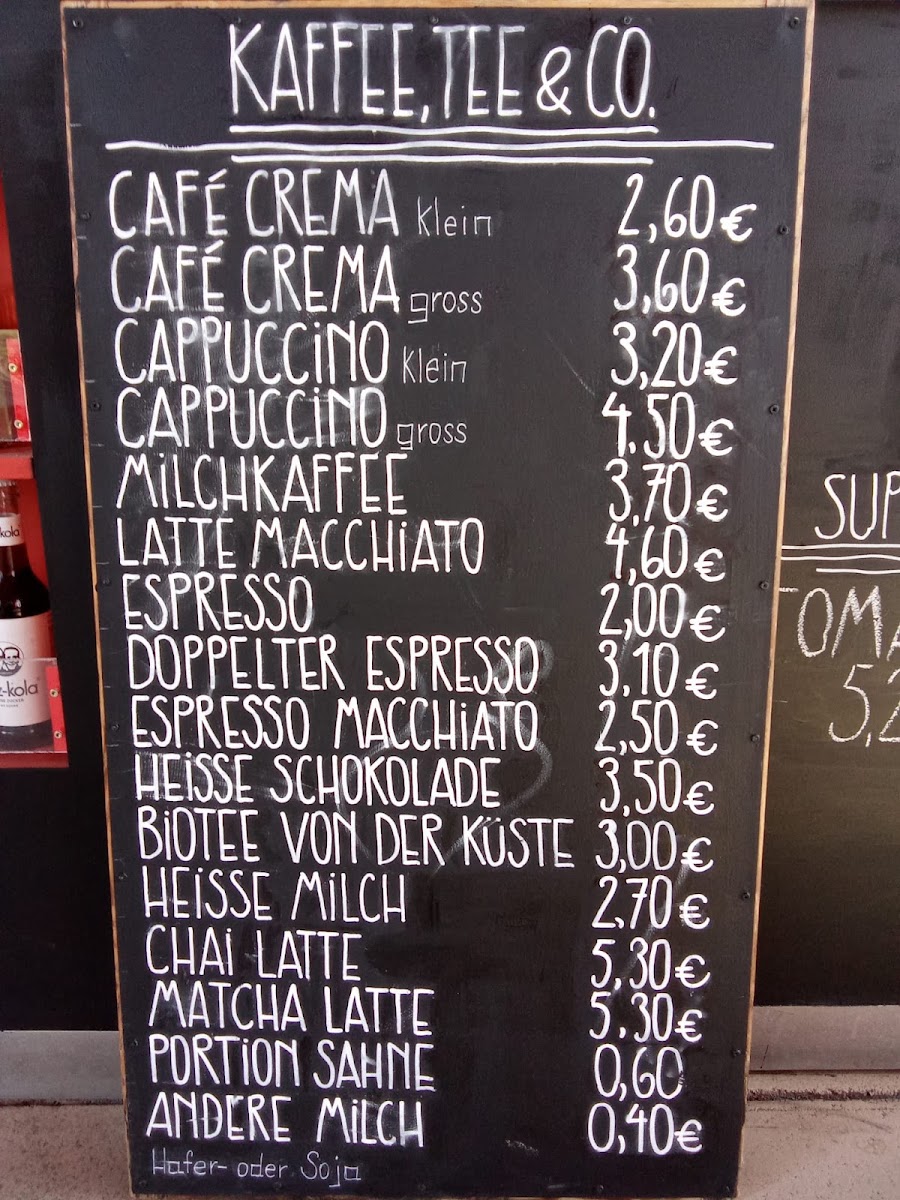 KAFFEE, TEE & CO.
CAFÉ CREMA klein 2,60 €
CAFÉ CREMA gross 3,60 €
CAPPUCCINO klein 3,20 €
CAPPUCCINO gross 4.50 €
MILCHKAFFEE 3,70 €
LATTE MACCHIATO 4,60 €
ESPRESSO 2,00 €
DOPPELTER ESPRESSO 3,10 €
ESPRESSO MACCHIATO 2,50 €
HEISSE SCHOKOLADE 3,50 €
BIOTEE VON DER KÜSTE 3,00 €
HEISSE MILCH 2,70 €
CHAI LATTE 5,30 €
MATCHA LATTE 5.30 €
PORTION SAHNE 0,60
ANDERE MILCH 0,40 €
Hafer- oder Soja
SUP
TOMA
5,2
kola
z-kola